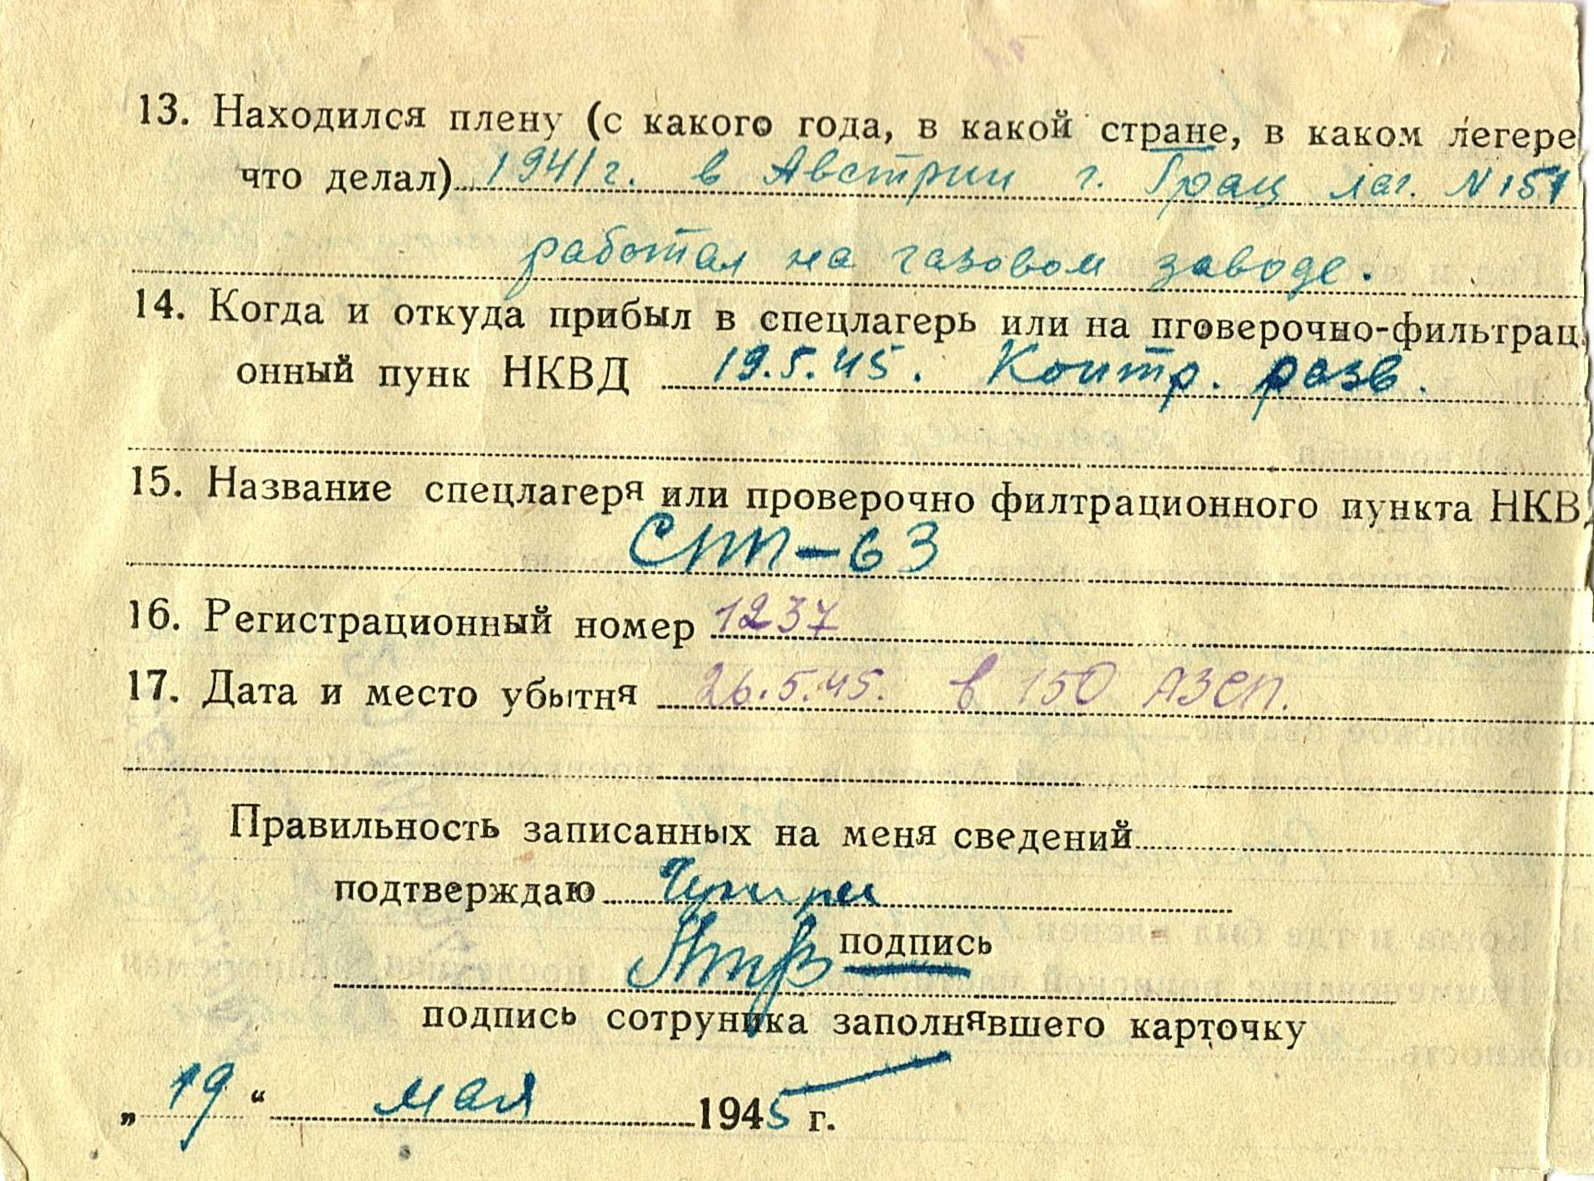 13. Находился плену (с какого года, в какой стране, в каком легере
что делал) 1941 г. в Австрии г. Грац лаг. N 151
работал на газовом заводе.
14. Когда и откуда прибыл в спецлагерь или на пговерочно-фильтрац
онный пунк НКВД 19.5.45. Контр. разв.
15. Название спецлагеря или проверочно филтрационного пункта НКВ
СПП-63
16. Регистрационный номер 1237
17. Дата и место убытня 26.5.45. в 150 АЗСП.
Правильность записанных на меня сведений
подтверждаю
подпись
подпись сотруника заполнявшего карточку
„ 19 “ мая 1945 г.